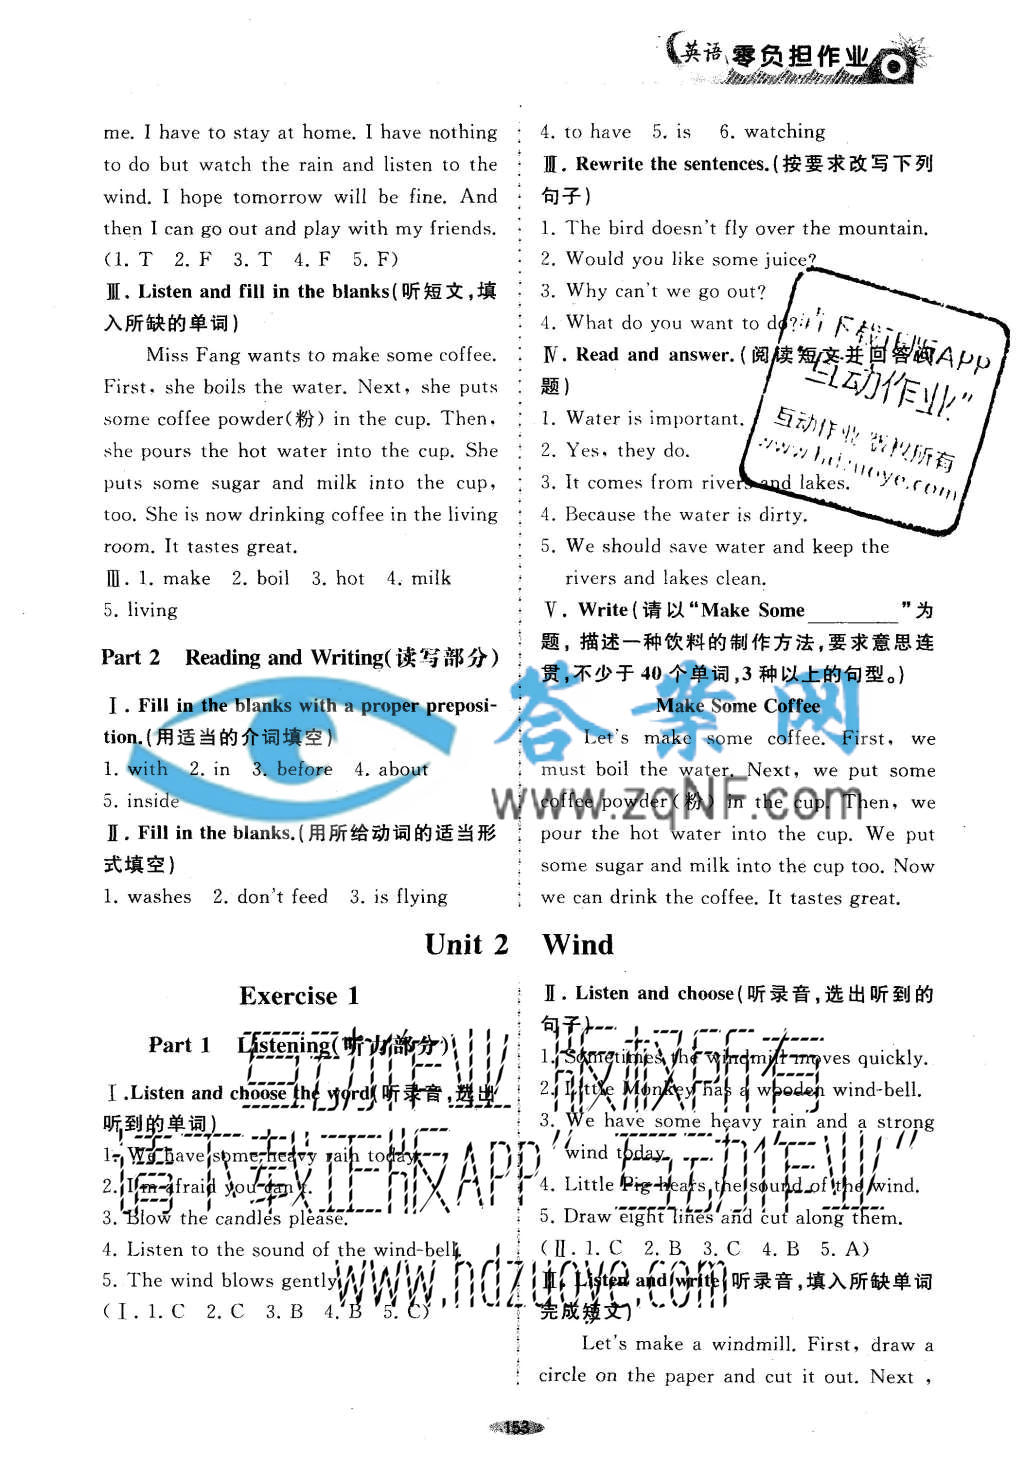 英语 零负担作业
me. I have to stay at home. I have nothing
to do but watch the rain and listen to the
wind. I hope tomorrow will be fine. And
then I can go out and play with my friends.
(1. T 2. F 3. T 4. F 5. F)
Ⅲ. Listen and fill in the blanks(听短文,填
入所缺的单词)
Miss Fang wants to make some coffee.
First, she boils the water. Next, she puts
some coffee powder(粉) in the cup. Then,
she pours the hot water into the cup. She
puts some sugar and milk into the cup,
too. She is now drinking coffee in the living
room. It tastes great.
Ⅲ. 1. make 2. boil 3. hot 4. milk
5. living
Part 2 Reading and Writing(读写部分)
Ⅰ. Fill in the blanks with a proper preposi-
tion.(用适当的介词填空)
1. with 2. in 3. before 4. about
5. inside
Ⅱ. Fill in the blanks.(用所给动词的适当形
式填空)
1. washes 2. don't feed 3. is flying
4. to have 5. is 6. watching
Ⅲ. Rewrite the sentences.(按要求改写下列
句子)
1. The bird doesn't fly over the mountain.
2. Would you like some juice?
3. Why can't we go out?
4. What do you want to do?
Ⅳ. Read and answer.(阅读短文并回答问
题)
1. Water is important.
2. Yes, they do.
3. It comes from rivers and lakes.
4. Because the water is dirty.
5. We should save water and keep the
rivers and lakes clean.
Ⅴ. Write(请以“Make Some ________”为
题, 描述一种饮料的制作方法,要求意思连
贯,不少于 40 个单词,3 种以上的句型。)
Make Some Coffee
Let's make some coffee. First, we
must boil the water. Next, we put some
coffee powder(粉) in the cup. Then, we
pour the hot water into the cup. We put
some sugar and milk into the cup too. Now
we can drink the coffee. It tastes great.
请下载正版APP
“互动作业”
互动作业 版权所有
www.hdzuoye.com
答案网
www.zqNF.com
Unit 2 Wind
Exercise 1
Part 1 Listening(听力部分)
Ⅰ.Listen and choose the word(听录音,选出
听到的单词)
1. We have some heavy rain today.
2. I'm afraid you can't.
3. Blow the candles please.
4. Listen to the sound of the wind-bell.
5. The wind blows gently.
(Ⅰ. 1. C 2. C 3. B 4. B 5. C)
Ⅱ. Listen and choose(听录音,选出听到的
句子)
1. Sometimes the windmill moves quickly.
2. Little Monkey has a wooden wind-bell.
3. We have some heavy rain and a strong
wind today.
4. Little Pig hears the sound of the wind.
5. Draw eight lines and cut along them.
(Ⅱ. 1. C 2. B 3. C 4. B 5. A)
Ⅲ. Listen and write(听录音,填入所缺单词
完成短文)
Let's make a windmill. First, draw a
circle on the paper and cut it out. Next ,
互动作业 版权所有
请下载正版APP“互动作业”
www.hdzuoye.com
153